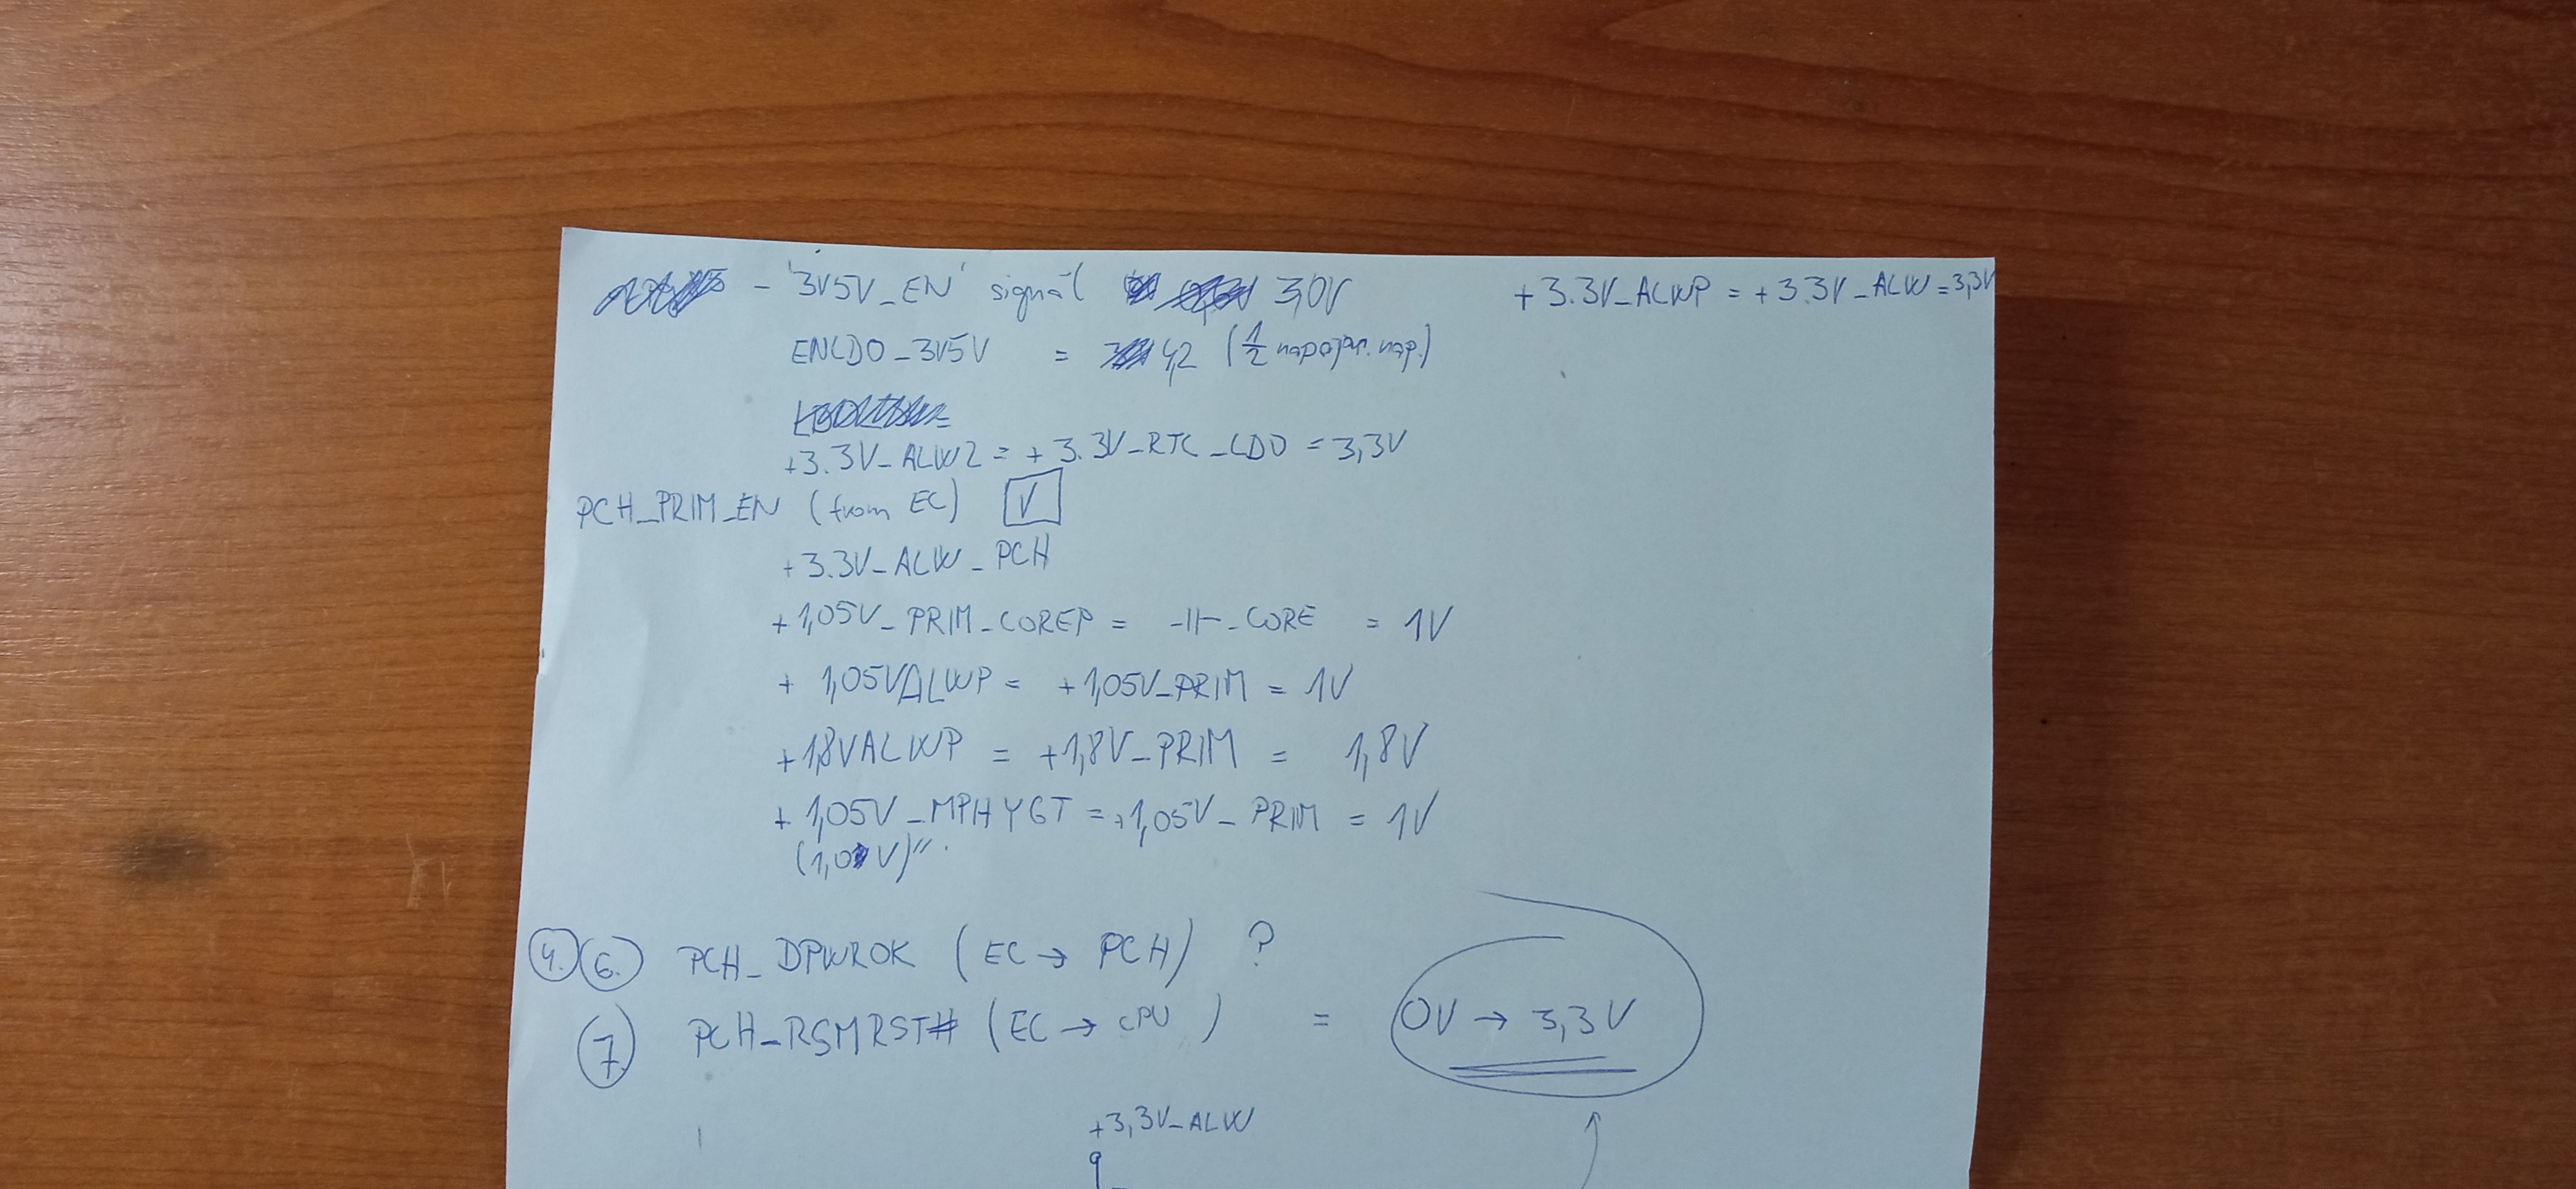 - '3V5V_EN' signál 3,0V +3.3V_ALWP = +3.3V_ALW = 3,3V
ENLDO_3V5V = 4,2 (1/2 napájac. nap.)
+3.3V_ALW2 = +3.3V_RTC_LDO = 3,3V
PCH_PRIM_EN (from EC) V
+3.3V_ALW_PCH
+1,05V_PRIM_COREP = -II-_CORE = 1V
+ 1,05VALWP = +1,05V_PRIM = 1V
+1,8VALWP = +1,8V_PRIM = 1,8V
+ 1,05V_MPHYGT = +1,05V_PRIM = 1V
4. 6. PCH_DPWROK (EC → PCH) ?
7. PCH_RSMRST# (EC → CPU) = 0V → 3,3V
+3,3V_ALW